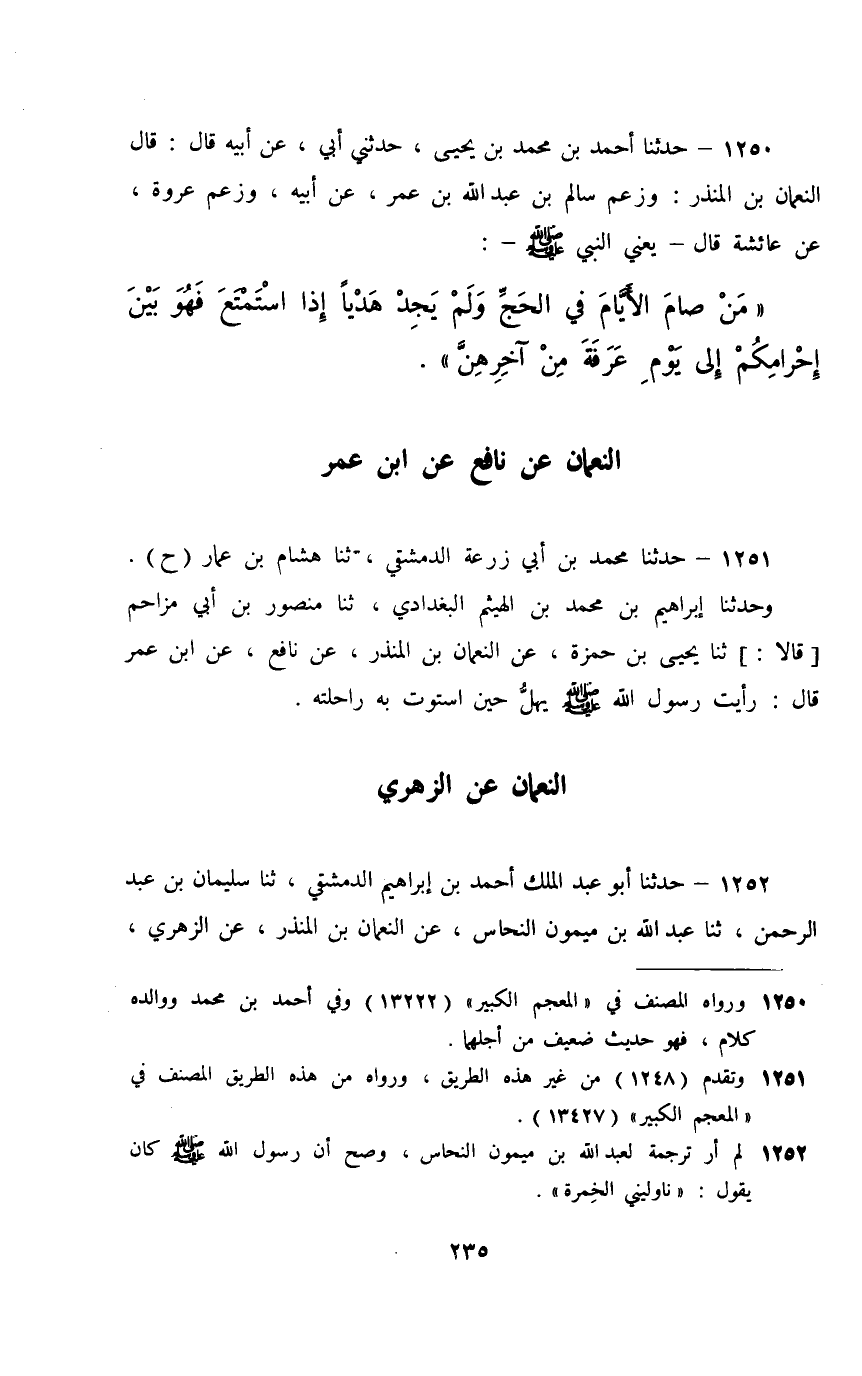 ١٢٥٠ – حدثنا أحمد بن محمد بن يحيى ، حدثني أبي ، عن أبيه قال : قال
النعمان بن المنذر : وزعم سالم بن عبد الله بن عمر ، عن أبيه ، وزعم عروة ،
عن عائشة قال – يعني النبي ﷺ – :
« مَنْ صامَ الأَيَّامَ في الحَجِّ وَلَمْ يَجِدْ هَدْياً إِذا اسْتَمْتَعَ فَهُوَ بَيْنَ
إِحْرامِكُمْ إِلى يَوْمِ عَرَفَةَ مِنْ آخِرِهِنَّ » .
النعمان عن نافع عن ابن عمر
١٢٥١ – حدثنا محمد بن أبي زرعة الدمشقي ، ثنا هشام بن عمار (ح) .
وحدثنا إبراهيم بن محمد بن الهيثم البغدادي ، ثنا منصور بن أبي مزاحم
[ قالا : ] ثنا يحيى بن حمزة ، عن النعمان بن المنذر ، عن نافع ، عن ابن عمر
قال : رأيت رسول الله ﷺ يهلُّ حين استوت به راحلته .
النعمان عن الزهري
١٢٥٢ – حدثنا أبو عبد الملك أحمد بن إبراهيم الدمشقي ، ثنا سليمان بن عبد
الرحمن ، ثنا عبد الله بن ميمون النحاس ، عن النعمان بن المنذر ، عن الزهري ،
١٢٥٠ ورواه المصنف في « المعجم الكبير » (١٣٢٢٢) وفي أحمد بن محمد ووالده
كلام ، فهو حديث ضعيف من أجلها .
١٢٥١ وتقدم (١٢٤٨) من غير هذه الطريق ، ورواه من هذه الطريق المصنف في
« المعجم الكبير » (١٣٤٢٧) .
١٢٥٢ لم أر ترجمة لعبد الله بن ميمون النحاس ، وصح أن رسول الله ﷺ كان
يقول : « ناوليني الخِمرة » .
٢٣٥